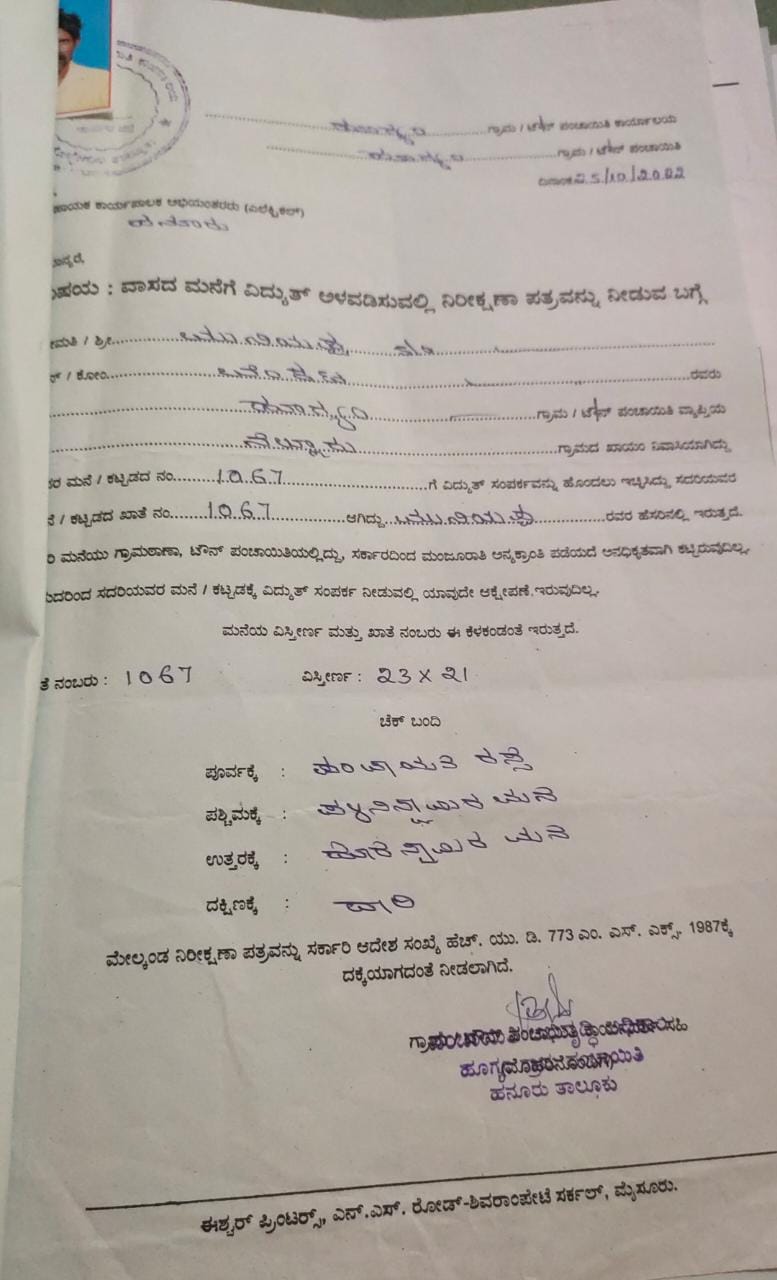 ಹೂಗ್ಯಂ ಗ್ರಾಮ / ಟೌನ್ ಪಂಚಾಯಿತಿ ಕಾರ್ಯಾಲಯ
ಹೂಗ್ಯಂ ಗ್ರಾಮ / ಟೌನ್ ಪಂಚಾಯಿತಿ
ದಿನಾಂಕ 25/10/2022
ಹಾಯಕ ಕಾರ್ಯಪಾಲಕ ಅಭಿಯಂತರರು (ಎಲೆಕ್ಟ್ರಿಕಲ್)
ಹನೂರು
ನ್ಯರೆ,
ಷಯ : ವಾಸದ ಮನೆಗೆ ವಿದ್ಯುತ್ ಅಳವಡಿಸುವಲ್ಲಿ ನಿರೀಕ್ಷಣಾ ಪತ್ರವನ್ನು ನೀಡುವ ಬಗ್ಗೆ
ಮತಿ / ಶ್ರೀ
/ ಕೋಂ ರವರು
ಹೂಗ್ಯಂ ಗ್ರಾಮ / ಟೌನ್ ಪಂಚಾಯಿತಿ ವ್ಯಾಪ್ತಿಯ
ಗ್ರಾಮದ ಖಾಯಂ ನಿವಾಸಿಯಾಗಿದ್ದು
ರ ಮನೆ / ಕಟ್ಟಡದ ನಂ. 1067 ಗೆ ವಿದ್ಯುತ್ ಸಂಪರ್ಕವನ್ನು ಹೊಂದಲು ಇಚ್ಛಿಸಿದ್ದು ಸದರಿಯವರ
/ ಕಟ್ಟಡದ ಖಾತೆ ನಂ. 1067 ಆಗಿದ್ದು ರವರ ಹೆಸರಿನಲ್ಲಿ ಇರುತ್ತದೆ.
ರಿ ಮನೆಯು ಗ್ರಾಮಠಾಣಾ, ಟೌನ್ ಪಂಚಾಯಿತಿಯಲ್ಲಿದ್ದು, ಸರ್ಕಾರದಿಂದ ಮಂಜೂರಾತಿ ಅನ್ಯಕ್ರಾಂತಿ ಪಡೆಯದೆ ಅನಧಿಕೃತವಾಗಿ ಕಟ್ಟಿರುವುದಿಲ್ಲ.
ದರಿಂದ ಸದರಿಯವರ ಮನೆ / ಕಟ್ಟಡಕ್ಕೆ ವಿದ್ಯುತ್ ಸಂಪರ್ಕ ನೀಡುವಲ್ಲಿ ಯಾವುದೇ ಆಕ್ಷೇಪಣೆ ಇರುವುದಿಲ್ಲ.
ಮನೆಯ ವಿಸ್ತೀರ್ಣ ಮತ್ತು ಖಾತೆ ನಂಬರು ಈ ಕೆಳಕಂಡಂತೆ ಇರುತ್ತದೆ.
ತೆ ನಂಬರು : 1067 ವಿಸ್ತೀರ್ಣ : 23 x 21
ಚೆಕ್ ಬಂದಿ
ಪೂರ್ವಕ್ಕೆ : ಪಂಚಾಯತಿ ರಸ್ತೆ
ಪಶ್ಚಿಮಕ್ಕೆ : ಪಳನಿಸ್ವಾಮಿರ ಮನೆ
ಉತ್ತರಕ್ಕೆ : ಮನೆ
ದಕ್ಷಿಣಕ್ಕೆ : ದಾರಿ
ಮೇಲ್ಕಂಡ ನಿರೀಕ್ಷಣಾ ಪತ್ರವನ್ನು ಸರ್ಕಾರಿ ಆದೇಶ ಸಂಖ್ಯೆ ಹೆಚ್. ಯು. ಡಿ. 773 ಎಂ. ಎಸ್. ಎಕ್ಸ್. 1987ಕ್ಕೆ
ದಕ್ಕೆಯಾಗದಂತೆ ನೀಡಲಾಗಿದೆ.
ಹನೂರು ತಾಲ್ಲೂಕು
ಈಶ್ವರ್ ಪ್ರಿಂಟರ್ಸ್, ಎನ್.ಎಸ್. ರೋಡ್-ಶಿವರಾಂಪೇಟೆ ಸರ್ಕಲ್, ಮೈಸೂರು.